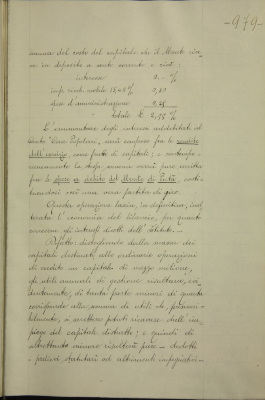 -979-
annua del costo del capitale che il Monte tie-
ne in deposito a conto corrente e cioè:
interesse 2.- %
imp. ricch. mobile
spese d'amministrazione
totale £.
L'ammontare degli interessi addebitati al
Conto "Case Popolari", verrà compreso fra le rendite
dell'esercizio, come frutto di capitali; e contempo-
raneamente la stessa somma verrà pure iscritta
fra le spese a debito del Monte di Pietà, costi-
tuendosi così una vera partita di giro.
Questa operazione lascia, in definitiva, inal-
terata l'economia del bilancio, per quanto
concerne gli interessi diretti dell'Istituto.-
Difatti: distogliendo dalla massa dei
capitali destinati alle ordinarie operazioni
di credito un capitale di mezzo milione,
gli utili annuali di gestione risultano, evi-
dentemente, di tanto frutto minori di quanto
corrisponde alla somma di utili che, presumi-
bilmente, si sarebbero potuti ricavare dall'im-
piego del capitale distratto; e quindi di
altrettanto minore risulterà pure - dedotti
i prelievi statutari ed altrimenti impegnati -